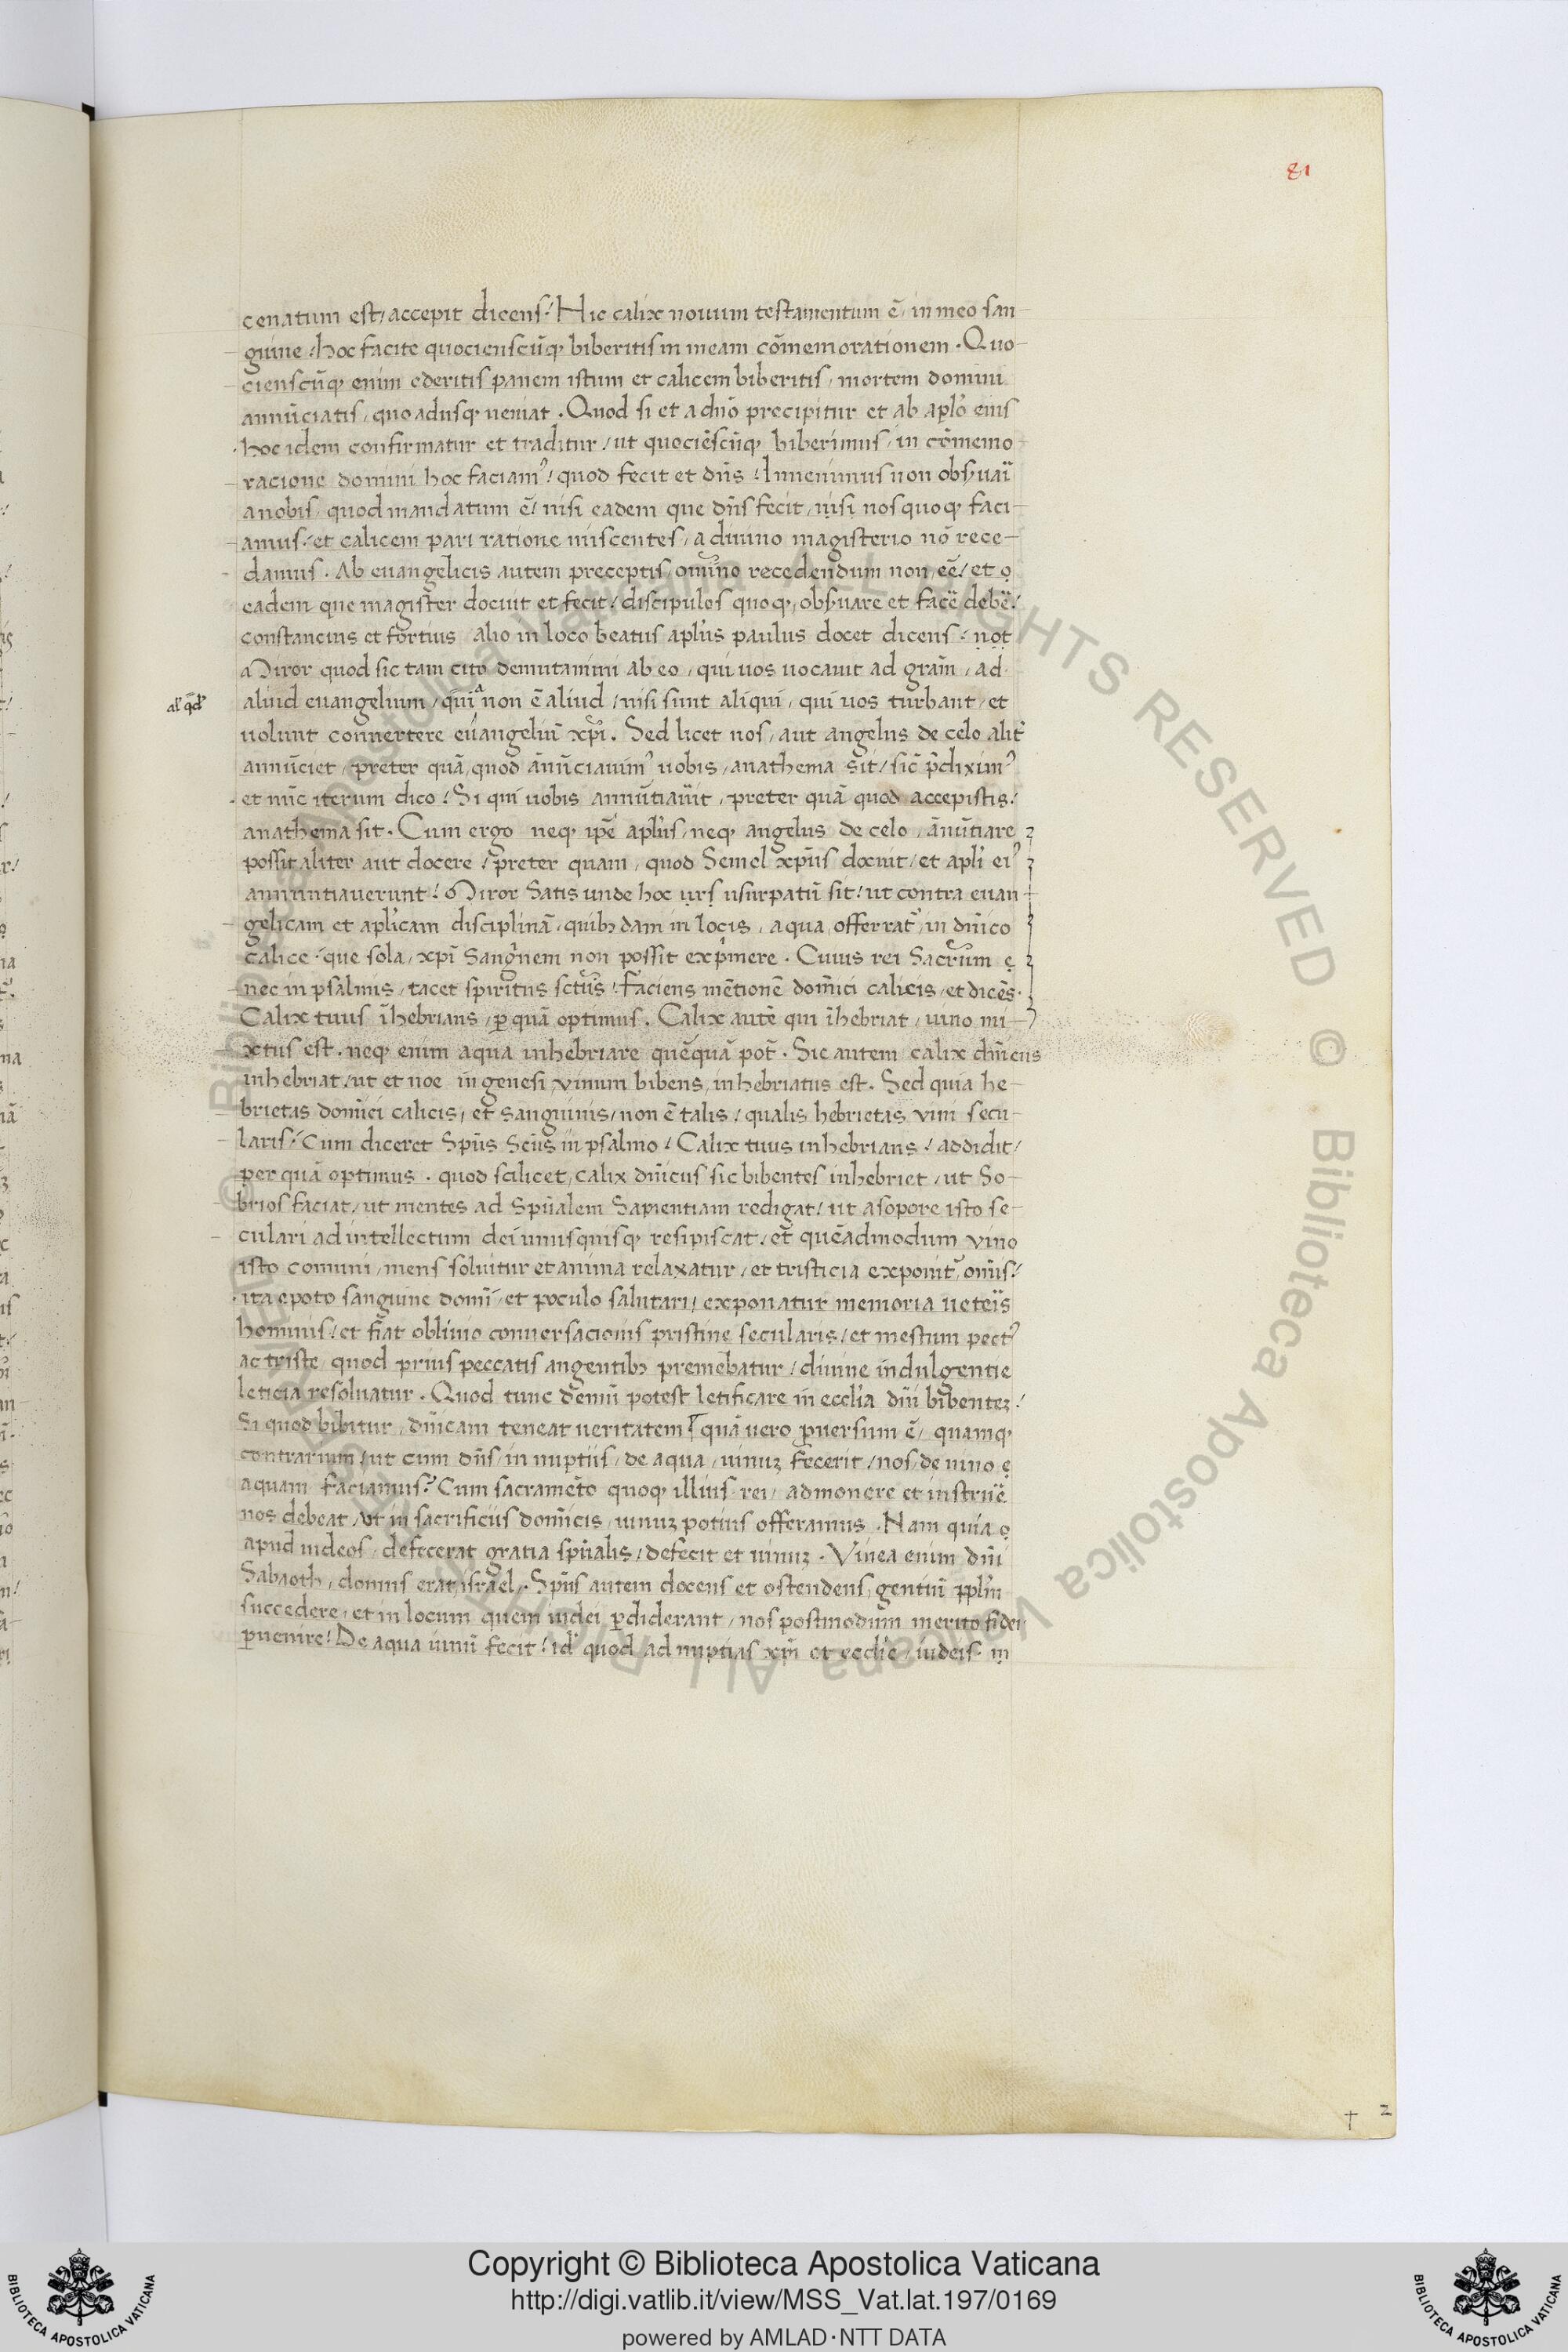 81
cenatum est, accepit dicens: Hic calix nouum testamentum ē, in meo san-
guine: hoc facite quocienscūq; biberitis in meam cōmemorationem. Quo-
cienscūq; enim ederitis panem istum et calicem biberitis, mortem domini
annūciatis, quo adusq; ueniat. Quod si et a dn̄o precipitur et ab aplo᷒ eius
hoc idem confirmatur et traditur, ut quociēscūq; biberimus, in cōmemo-
racione domini hoc faciam᷒, quod fecit et dn̄s: Inuenimus non obs̄uaī
a nobis, quod mandatum ē, nisi eadem que dn̄s fecit, nisi nos quoq; faci-
amus, et calicem pari ratione miscentes, a diuino magisterio nō rece-
damus. Ab euangelicis autem preceptis, omīno recedendum non, eē, et
eadem que magister docuit et fecit, discipulos quoq; obs̄uare et facē debē,
constancius et fortius alio in loco beatus apl᷒us paulus docet dicens: not
Miror quod sic tam cito demutamini ab eo, qui uos uocauit ad gram̄, ad
al᷒ qd᷒
aliud euangelium, quiª non ē aliud, nisi sunt aliqui, qui uos turbant, et
uolunt conuertere euangeliū xp̄i. Sed licet nos, aut angelus de celo alit᷒
annūciet, preter quā, quod ānūciauim᷒ uobis, anathema sit, sic̄ p̄dixim᷒
et nūc iterum dico: Si qui uobis annūtiaūit, preter quā quod accepistis,
anathema sit. Cum ergo neq; ip̄e apl᷒us, neq; angelus de celo, ānūtiare
possit aliter aut docere, preter quam, quod Semel xp̄us docuit, et apl᷒i ei᷒
annuntiauerunt: Miror Satis unde hoc urs usurpatū sit, ut contra euan-
gelicam et apl᷒icam disciplinā, quibz dam in locis, aqua, offerrat᷒, in dn̄ico
calice, que sola, xp̄i Sangⁱnem non possit expⁱmere. Cuius rei Sacr̄um
nec in psalmis, tacet spiritus sct̄us: Faciens mētionē domīci calicis, et dicēs.
Calix tuus īhebrians, p̱ quā optimus. Calix autē qui īhebriat, uino mi-
xtus est. neq; enim aqua inhebriare quēquā pot̄. Sic autem calix dn̄icus
inhebriat, ut et noe in genesi, vinum bibens, inhebriatus est. Sed quia he-
brietas domīci calicis, et sanguinis, non ē talis, qualis hebrietas vini secu-
laris: Cum diceret Sp̄us Sc̄us in psalmo: Calix tuus inhebrians: addidit,
per quā optimus. quod scilicet, calix dn̄icus sic bibentes inhebriet, ut So-
brios faciat, ut mentes ad Sp̄ualem Sapientiam redigat, ut a sopore isto se-
culari ad intellectum dei unusquisq; resipiscat, et quēadmodum vino
isto comuni, mens soluitur et anima relaxatur, et tristicia exponit᷒ omīs,
ita epoto sanguine domī, et poculo salutari, exponatur memoria ueteīs
hominis, et fiat obliuio conuersacionis pristine secularis, et mestum pect᷒
ac triste, quod prius peccatis angentibz premebatur, diuine indulgentie
leticia resoluatur. Quod tunc demū potest letificare in eccl᷒ia dn̄i bibentez,
Si quod bibitur, dn̄icam teneat ueritatem: quā uero p̱uersum ē, quamq;
contrarium, ut cum dn̄s, in nuptiis, de aqua, uinuz fecerit, nos, de uino
aquam faciamus? Cum sacramēto quoq; illius rei, admonere et instruē
nos debeat, ut in sacrificiis domīcis, uinuz potius offeramus. Nam quia
apud iudeos, defecerat gratia sp̄ualis, defecit et uinuz. Vinea enim dn̄i
Sabaoth, domus erat, israel. Sp̄us autem docens et ostendens, gentiū ppl᷒m
succedere, et in locum quem iudei p̱diderant, nos postmodum merito fidei
p̱uenire: De aqua uinū fecit: id᷒ quod ad nuptias xp̄i et eccl᷒ie, iudeis.
Copyright © Biblioteca Apostolica Vaticana
http://digi.vatlib.it/view/MSS_Vat.lat.197/0169
powered by AMLAD·NTT DATA
BIBLIOTECA APOSTOLICA VATICANA
BIBLIOTECA APOSTOLICA VATICANA